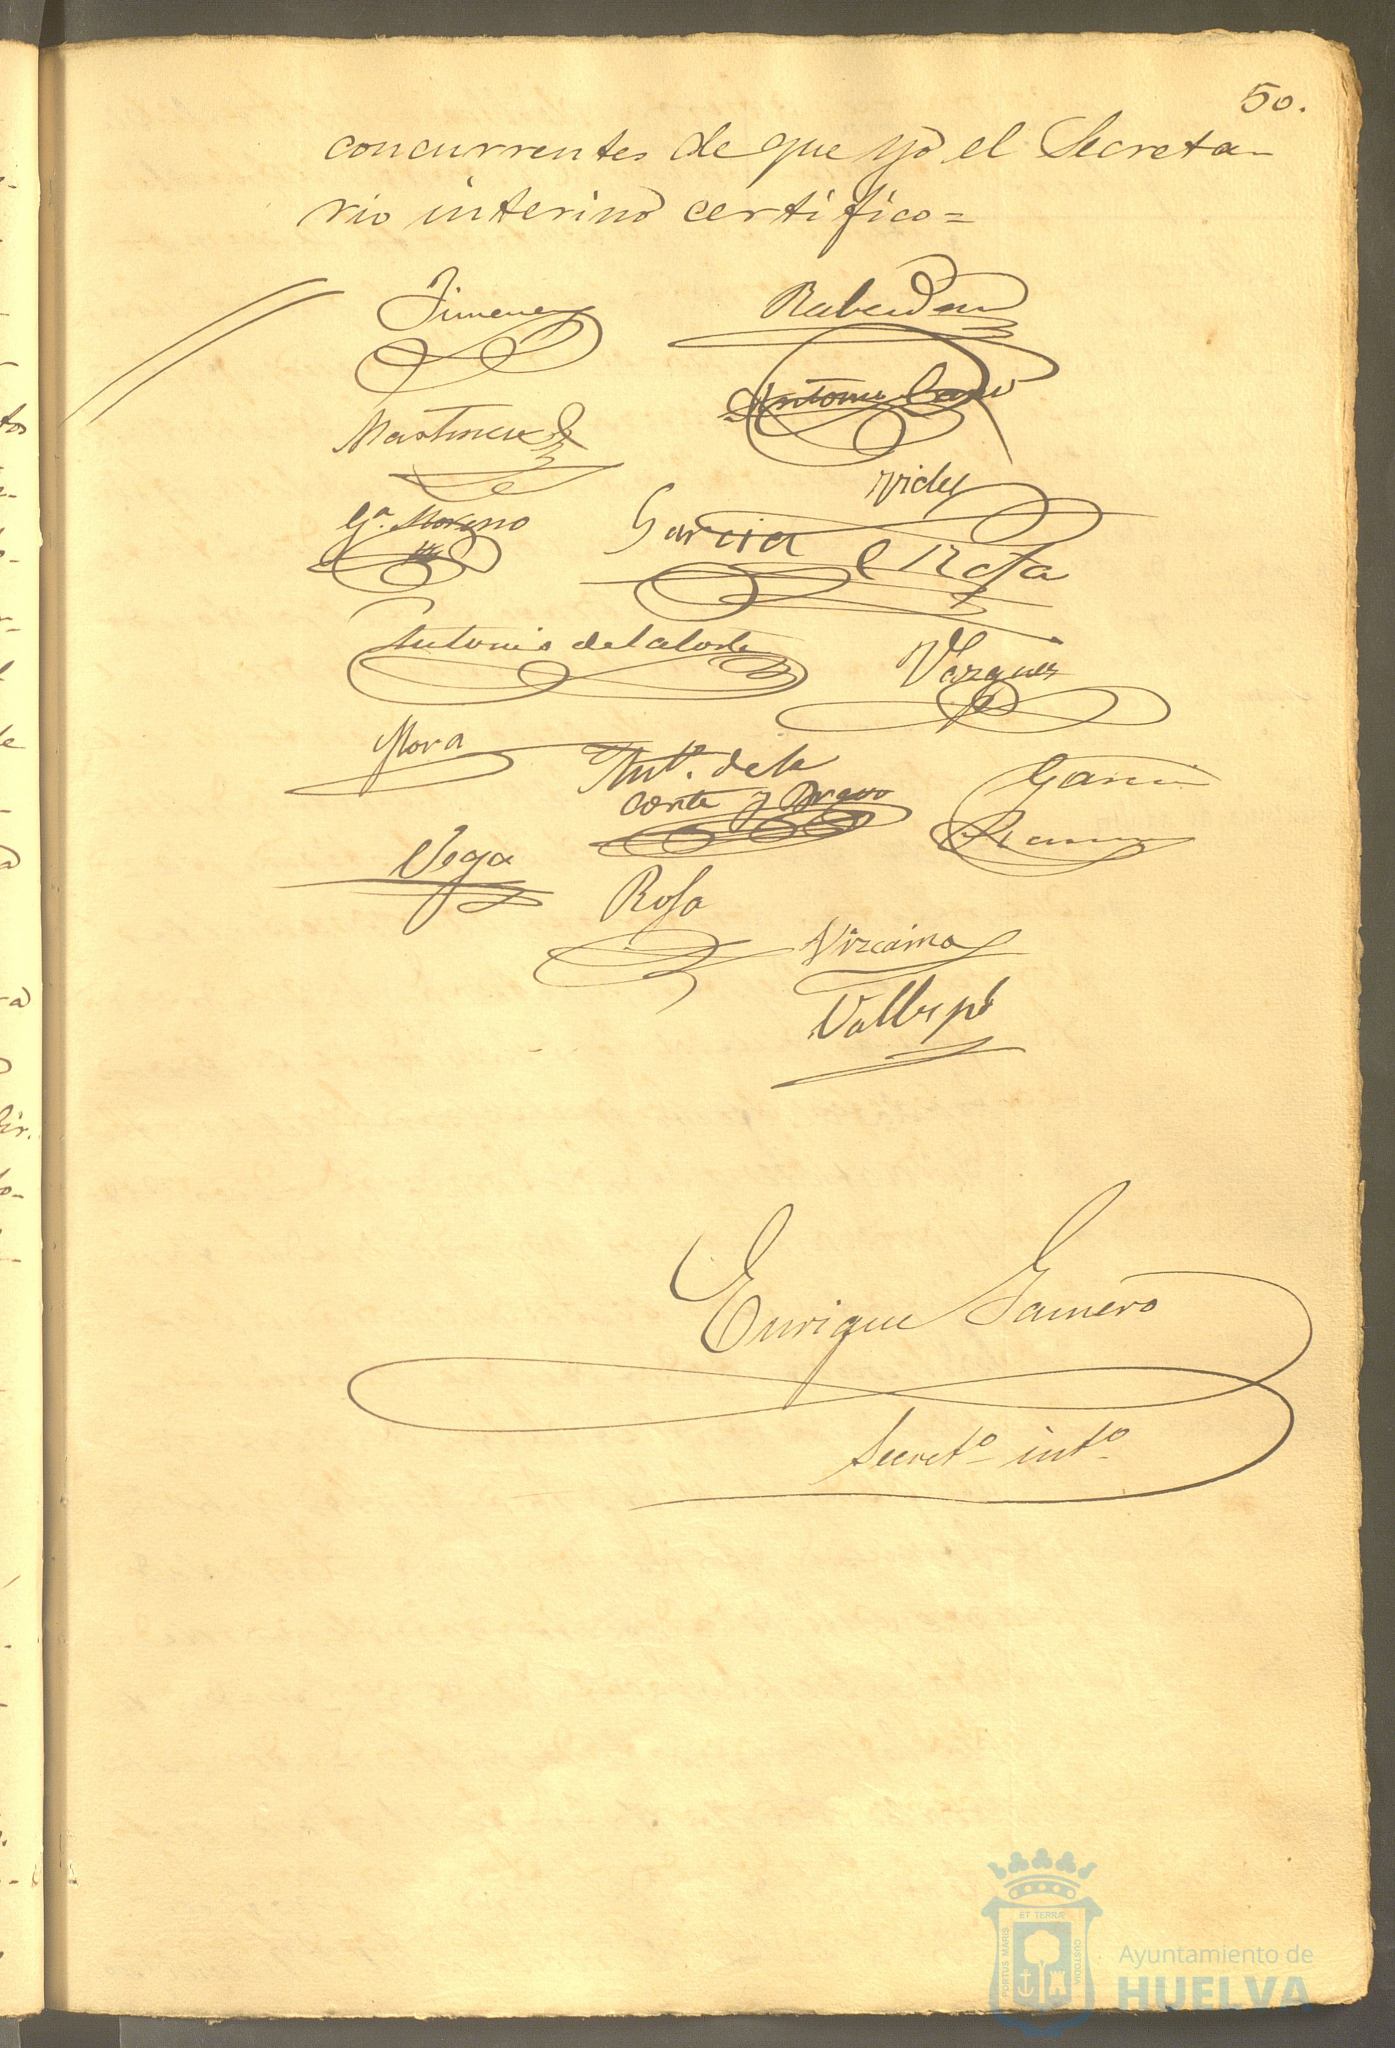 50.
concurrentes de que yo el Secreta-
rio interino certifico=
Jimenez
Rabadan
Antonio
Martinez
Videz
Ga. Moreno
Garcia é Rosa
Antonio de la Corte
Vazquez
Mora
Anto. de la
Corte y Bravo
Garcia
Ramos
Vega
Rosa
Vizcaino
Vallespí
Enrique Gamero
Secreto. into.
PORTUS MARIS
ET TERRÆ
CUSTODIA
Ayuntamiento de
HUELVA